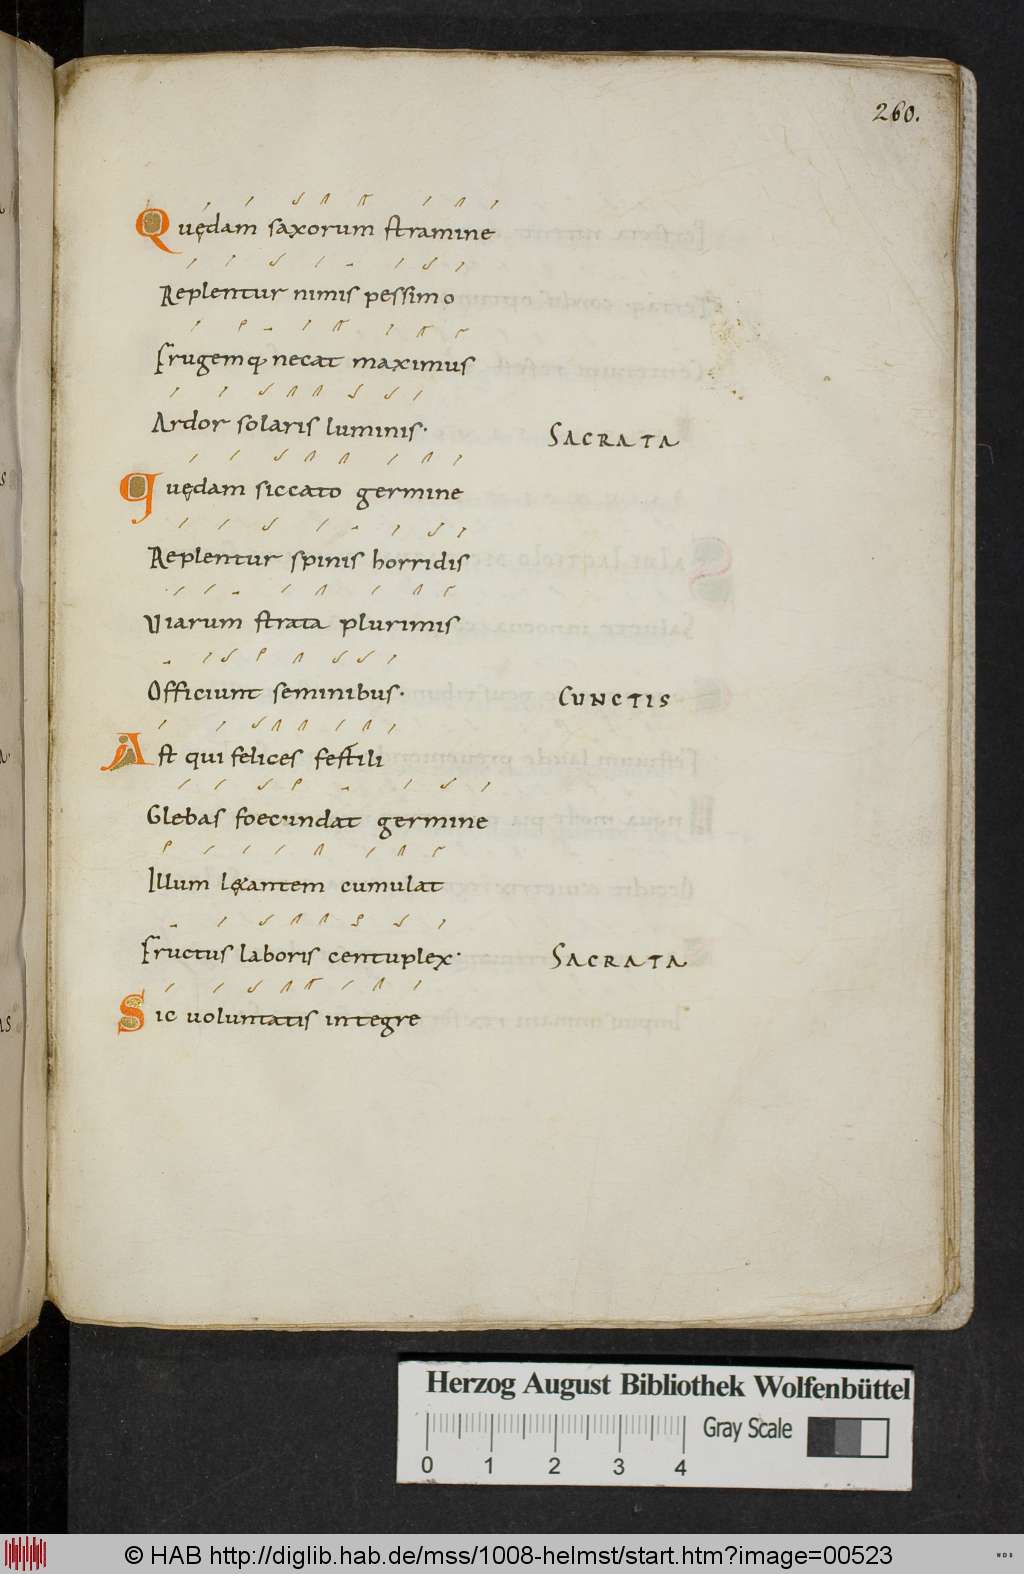 260.
Quędam saxorum stramine
Replentur nimis pessimo
Frugemq; necat maximus
Ardor solaris luminis·
SACRATA
Quędam siccato germine
Replentur spinis horridis
Viarum strata plurimis
Officiunt seminibus·
CUNCTIS
Ast qui felices festili
Glebas foecundat germine
Illum lęxantem cumulat
Fructus laboris centuplex·
SACRATA
Sic uoluntatis integre
Herzog August Bibliothek Wolfenbüttel
Gray Scale
0 1 2 3 4
© HAB http://diglib.hab.de/mss/1008-helmst/start.htm?image=00523